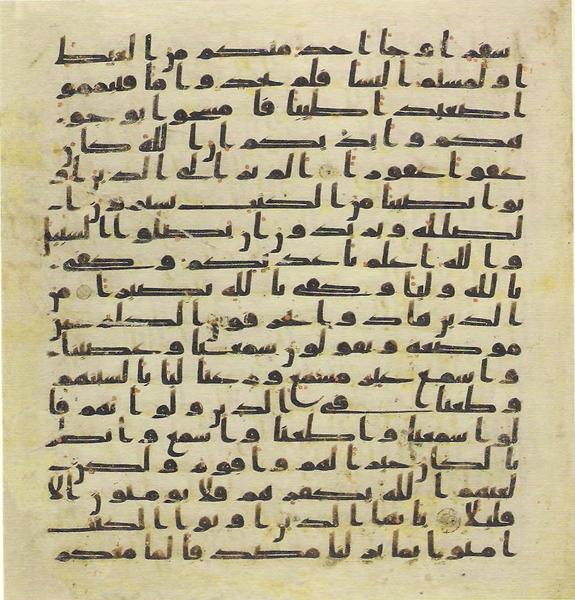 سفر او جا احد منكم من الغيط
او لمستم النسا فلم تجدوا ما فتيممو
ا صعيدا طيبا فامسحوا بوجو
هكم وايديكم ان الله كان
عفوا غفورا الم تر الى الذين ا و
توا نصيبا من الكتب يشترون ا
لضلله ويريدون ان تضلوا السبيل
والله اعلم باعديكم وكفى
بالله وليا وكفى بالله نصيرا من
الذين هادوا يحرفون الكلم عن
موضعه ويقولون سمعنا وعصينا
واسمع غير مسمع ورعنا ليا بالسنتهم
وطعنا في الدين ولو انهم قا
لوا سمعنا واطعنا واسمع وانظر
نا لكان خيرا لهم واقوم ولكن
لعنهم الله بكفرهم فلا يومنون الا
قليلا يايها الذين اوتوا الكتب
امنوا بما نزلنا مصدقا لما معكم